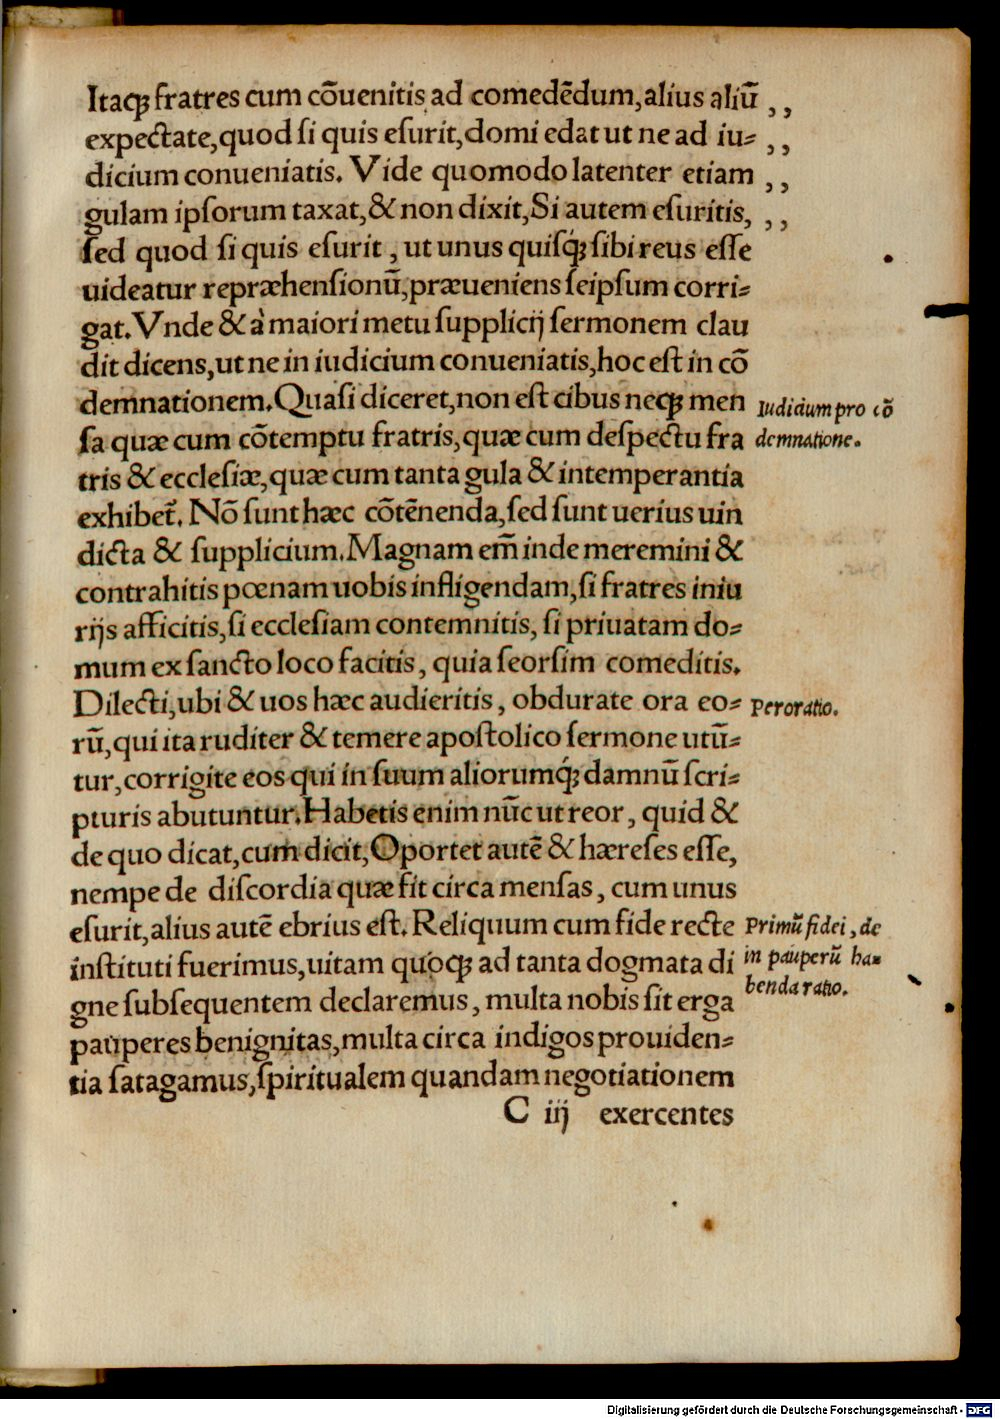 Itaqꝫ fratres cum cõuenitis ad comedẽdum,alius aliũ ,,
expectate,quod ſi quis eſurit,domi edat ut ne ad iu⸗ ,,
dicium conueniatis. Vide quomodo latenter etiam ,,
gulam ipſorum taxat,& non dixit,Si autem eſuritis, ,,
ſed quod ſi quis eſurit , ut unus quiſq́ꝫ ſibi reus eſſe
uideatur repræhenſionũ,præueniens ſeipſum corri⸗
gat.Vnde & à maiori metu ſupplicij ſermonem clau
dit dicens,ut ne in iudicium conueniatis,hoc eſt in cõ
demnationem.Quaſi diceret,non eſt cibus neqꝫ men
Iudicium pro cõ
ſa quæ cum cõtemptu fratris,quæ cum deſpectu fra
demnatione.
tris & eccleſiæ,quæ cum tanta gula & intemperantia
exhibet̃. Nõ ſunt hæc cõtẽnenda,ſed ſunt uerius uin
dicta & ſupplicium.Magnam em̃ inde meremini &
contrahitis pœnam uobis infligendam,ſi fratres iniu
rijs afficitis,ſi eccleſiam contemnitis, ſi priuatam do⸗
mum ex ſancto loco facitis , quia ſeorſim comeditis.
Dilecti,ubi & uos hæc audieritis , obdurate ora eo⸗
Peroratio.
rũ,qui ita ruditer & temere apoſtolico ſermone utũ⸗
tur,corrigite eos qui in ſuum aliorumq́ꝫ damnũ ſcri⸗
pturis abutuntur.Habetis enim nũc ut reor , quid &
de quo dicat,cum dicit,Oportet autẽ & hæreſes eſſe,
nempe de diſcordia quæ fit circa menſas , cum unus
eſurit,alius autẽ ebrius eſt. Reliquum cum fide recte
Primũ fidei , de
inſtituti fuerimus,uitam quoqꝫ ad tanta dogmata di
in pauperũ ha⸗
gne ſubſequentem declaremus , multa nobis ſit erga
benda ratio.
pauperes benignitas,multa circa indigos prouiden⸗
tia ſatagamus,ſpiritualem quandam negotiationem
C iij exercentes
Digitalisierung gefördert durch die Deutsche Forschungsgemeinschaft - DFG